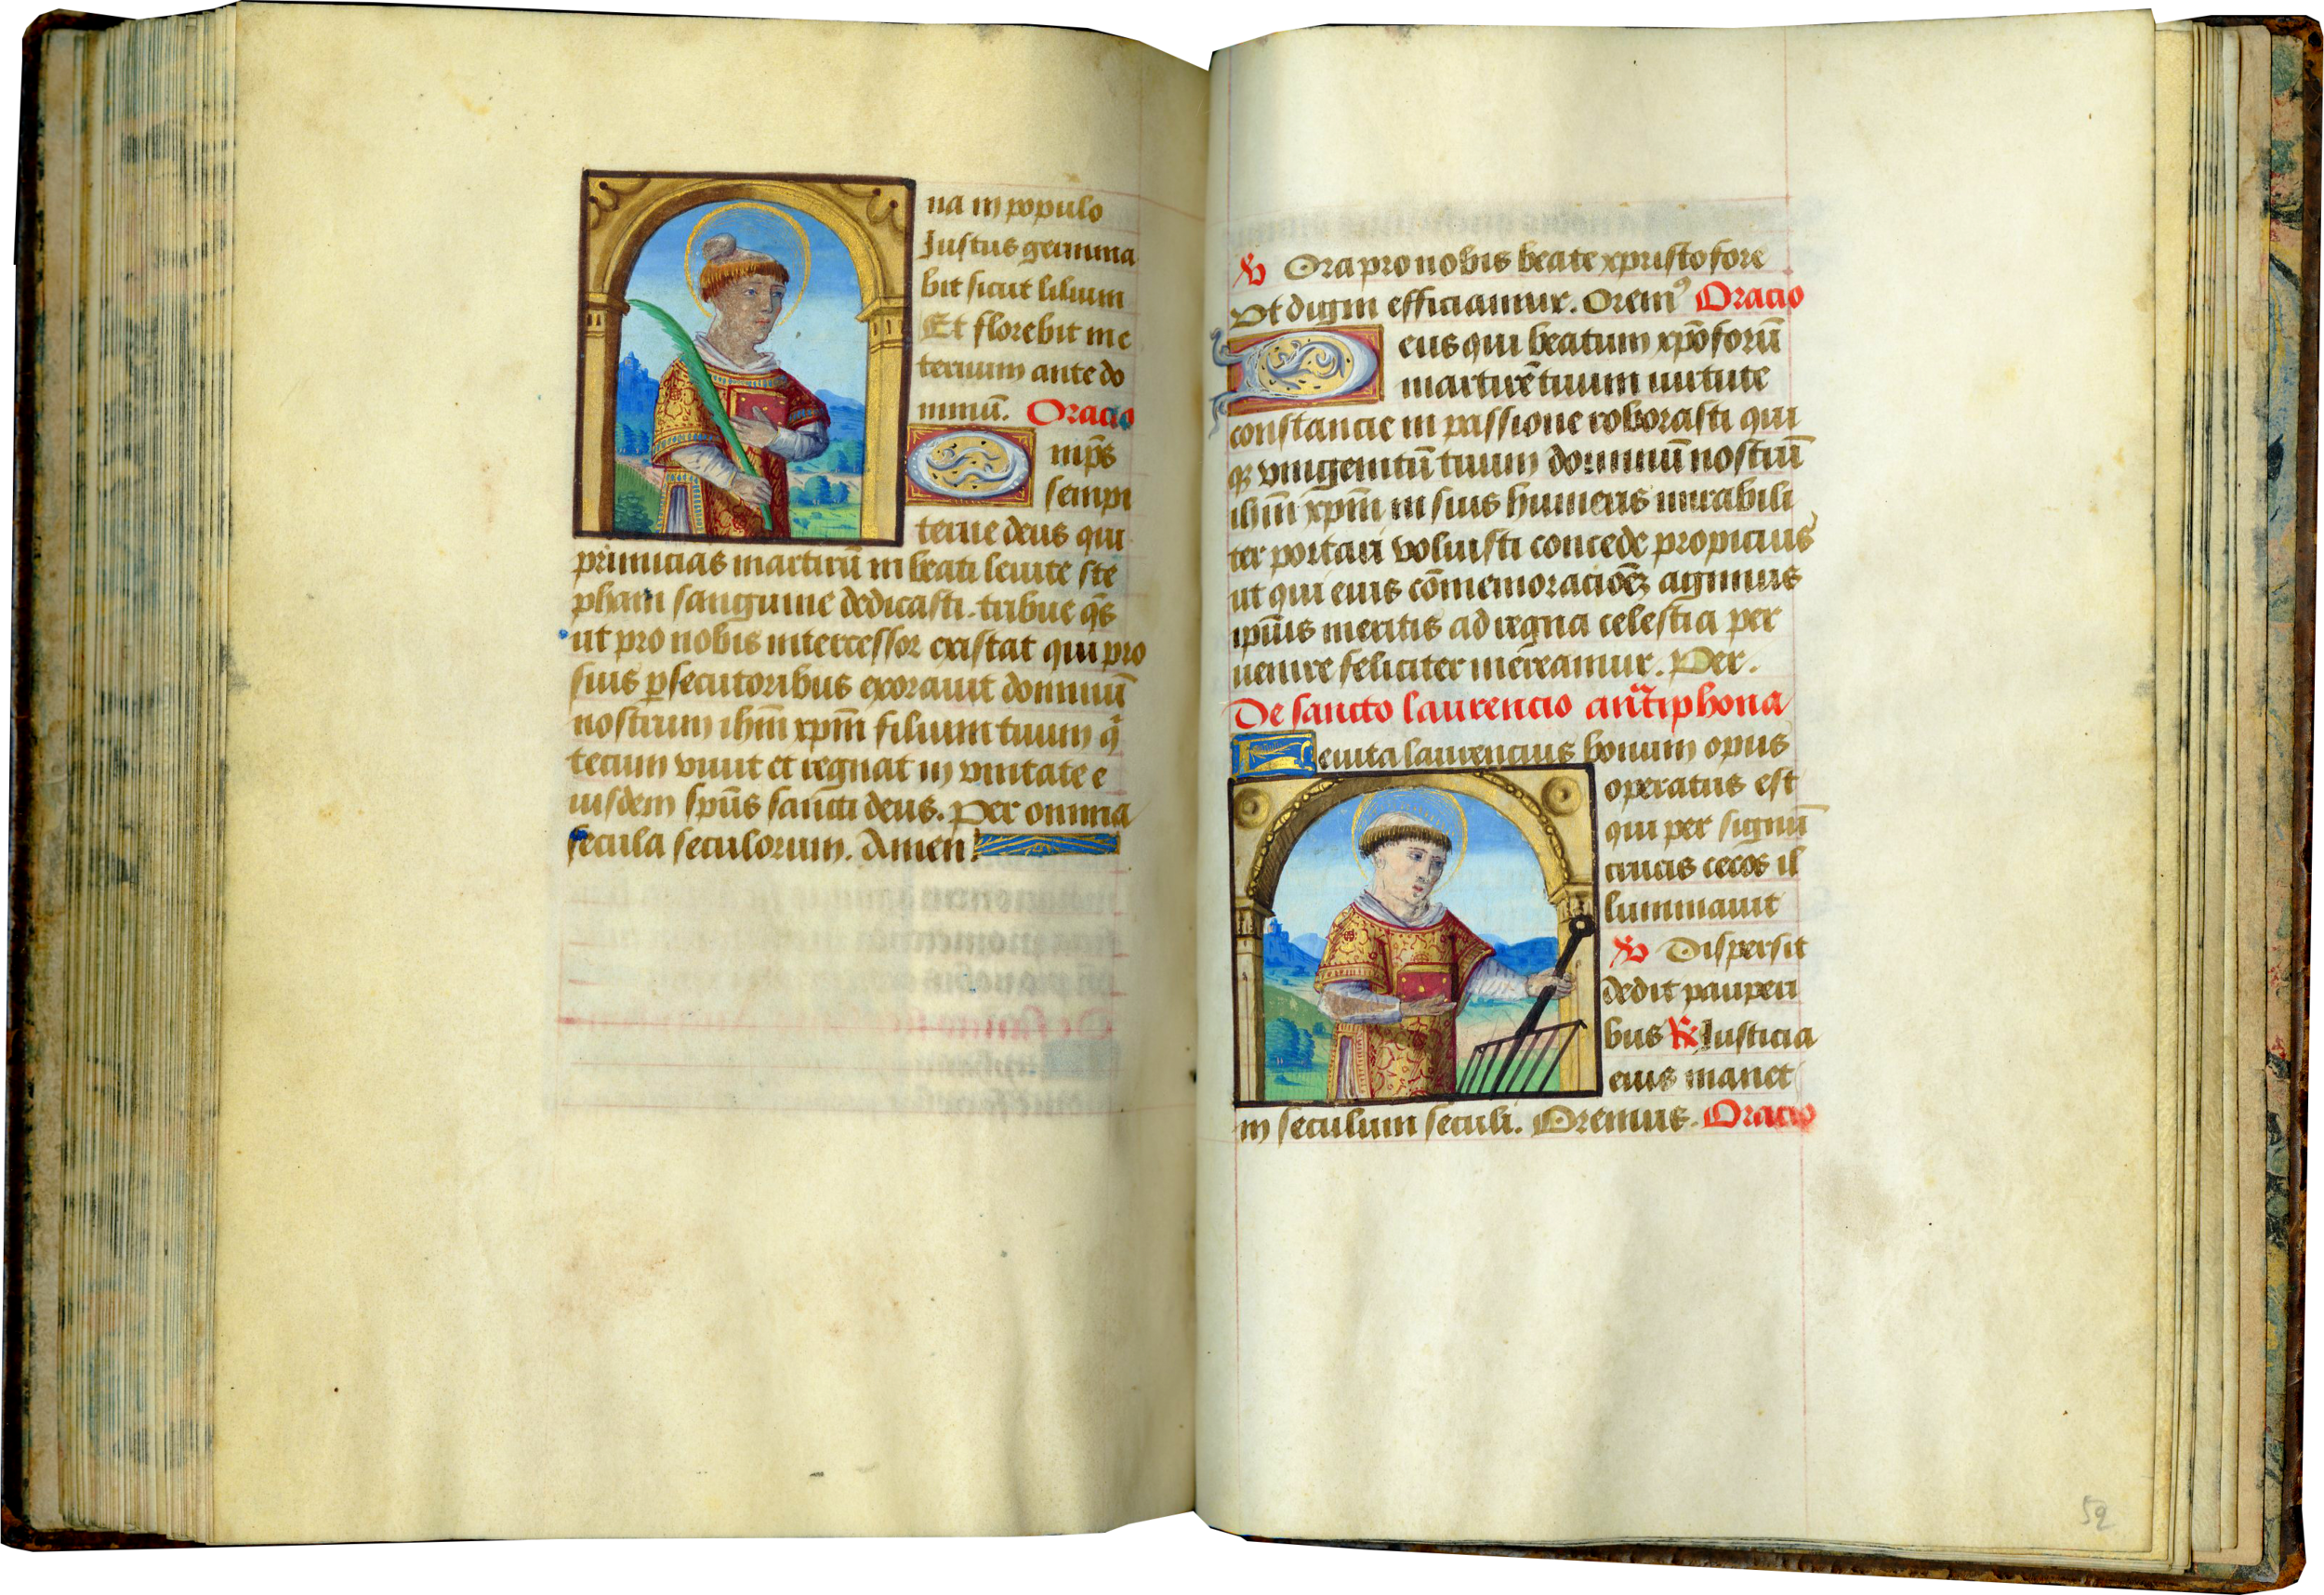 na in populo
Justus germina
bit sicut lilium
Et florebit in e
ternum ante do
minū. Oracio
Omp̄s
sempi
terne deus qui
primicias martirū in beati leuite ste
phani sanguine dedicasti. tribue q̄s
ut pro nobis intercessor existat qui pro
suis ꝑsecutoribus exorauit dominū
nostrum ihm̄ xpm̄ filium tuum q̄
tecum viuit et regnat in vnitate e
iusdem spūs sancti deus. Per omnia
secula seculorum. Amen.
℣ Ora pro nobis beate xpristofore
Vt digni efficiamur. Oremꝰ Oracio
Deus qui beatum xpōforū
martirē tuum uirtute
constancie in passione roborasti qui
qꝫ vnigenitū tuum dominū nostrū
ihm̄ xpm̄ in suis humeris mirabili
ter portari voluisti concede propicius
ut qui eius cōmemoracioēꝫ agimus
ipius meritis ad regna celestia per
uenire feliciter mereamur. Per.
De sancto laurencio antiphona
Leuita laurencius bonum opus
operatus est
qui per signū
crucis cecos il
luminauit
℣ Dispersit
dedit pauperi
bus ℟ Justicia
eius manet
in seculum seculi. Oremus. Oracio
52